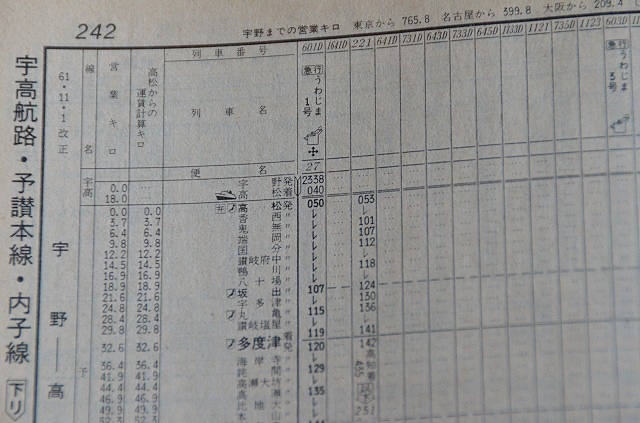 242
宇野までの営業キロ 東京から 765.8 名古屋から 399.8 大阪から 209.4
宇高航路・予讃本線・内子線
下り
61・11・1 改正
宇野──高
線名
営業キロ
高松からの運賃計算キロ
列車番号
601D 1611D 221 641D 731D 643D 733D 645D 1133D 1121 735D 1123 603D
列車名
急行 うわじま 1号
急行 うわじま 3号
便名 27
宇高
0.0 宇野発 2338
18.0 高松着 040 053
0.0 0.0 弁 高松発 050
3.7 3.7 香西〃 レ 101
6.4 6.4 鬼無〃 レ 107
9.8 9.8 端岡〃 レ 112
12.2 12.2 国分〃 レ
14.5 14.5 讃岐府中〃 レ 118
16.9 16.9 鴨川〃 レ
18.9 18.9 八十場〃 レ 124
21.6 21.6 坂出〃 107 130
24.8 24.8 宇多津〃 レ 136
28.4 28.4 丸亀〃 115
29.8 29.8 讃岐塩屋〃 レ 141
32.6 32.6 多度津着 119 142
発 120 高知着
予
36.4 36.4 海岸寺〃 レ 455
41.9 41.9 詫間〃 129
44.4 44.4 高瀬〃
46.9 46.9 比地大〃
49.9 49.9 本山〃
135
251